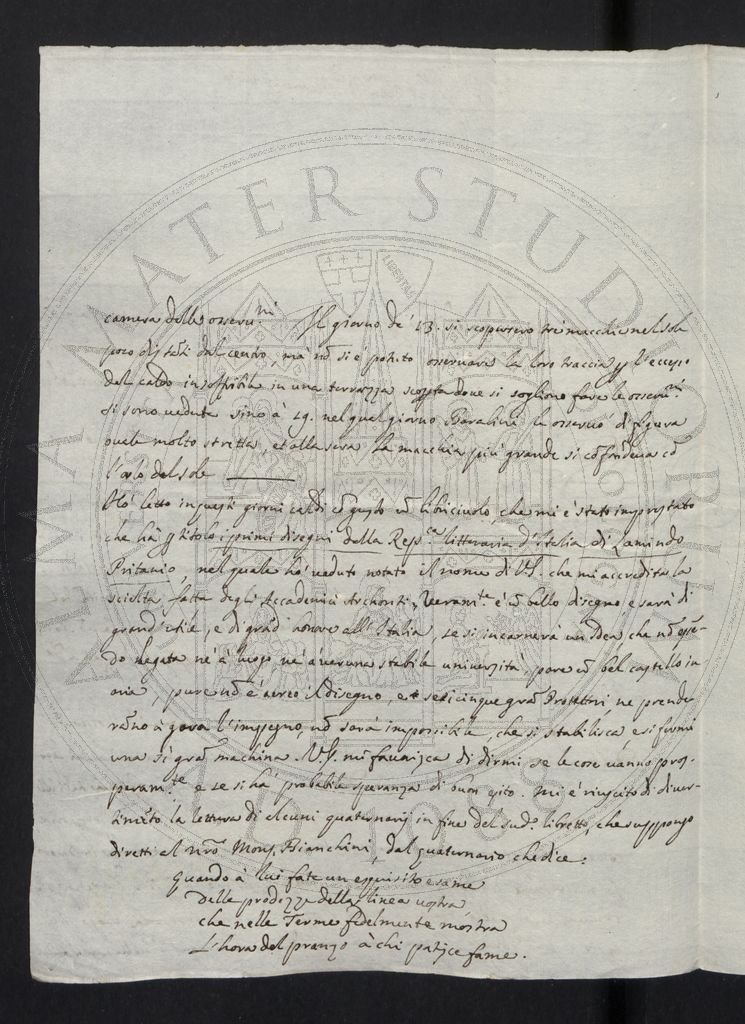 camera delle osseruni. Il giorno de' 13. si scopersero tre macchie nel sole
poco distãti dal centro, mà nõ si è potuto osseruare la loro traccia p l'eccesso
del caldo insoffribile in una terrazza scopta doue si sogliono fare le osseruni.
si sono uedute sino à 19. nel quel giorno Baralini le osseruò di figura
ouale molto stretta, et alla sera la macchia più grande si cõfondeua cõ
l'orlo del sole
Hò letto in questi giorni caldi cõ gusto un libriciuolo, che mi è stato imprestato
che hà p titolo i primi disegni della Repca. litteraria d'Italia di Lamindo
Pritanio, nel quale hò ueduto notato il nome di V.S. che mi accredita la
scielta fatta degli Accademici Archonti, Veramte. è un bello disegno e sarà di
grand'utile, e di grãd' honore all'Italia, se si incarnerà un Idea che nõ essẽ-
do legata nè à luogo nè à ueruna stabile uniuersità, pare un bel castello in
aria, pure nõ è aereo il disegno, e se sei cinque grã Protettori ne prende
rãno à gara l'impegno, nõ sarà impossibile, che si stabilisca e si formi
una sì grã machina. V.S. mi fauorisca di dirmi se le cose uanno pros-
peramte. e se si hà probabile speranza di buon esito. Mi è riuscito di diuer-
timẽto la lettura di alcuni quaternarij in fine del sudo. libretto, che suppongo
diretti al nrõ Mons. Bianchini, dal quaternario che dice:
Quando à lui fate un esquisito esame
Delle prodezze della linea uostra
che nelle Terme fidelmente mostra
L'hora del pranzo à chi patisce fame.
ALMA MATER STUDIORUM
LIBERTAS
A.D. 1088